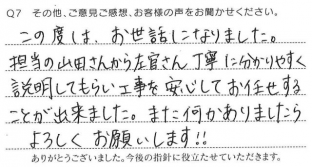 Q7 その他、ご意見ご感想、お客様の声をお聞かせください。
この度は、お世話になりました。
担当の山田さんから左官さん丁寧に分かりやすく
説明してもらい工事を安心してお任せする
ことが出来ました。また何かありましたら
よろしくお願いします!!
ありがとうございました。今後の指針に役立たせていただきます。